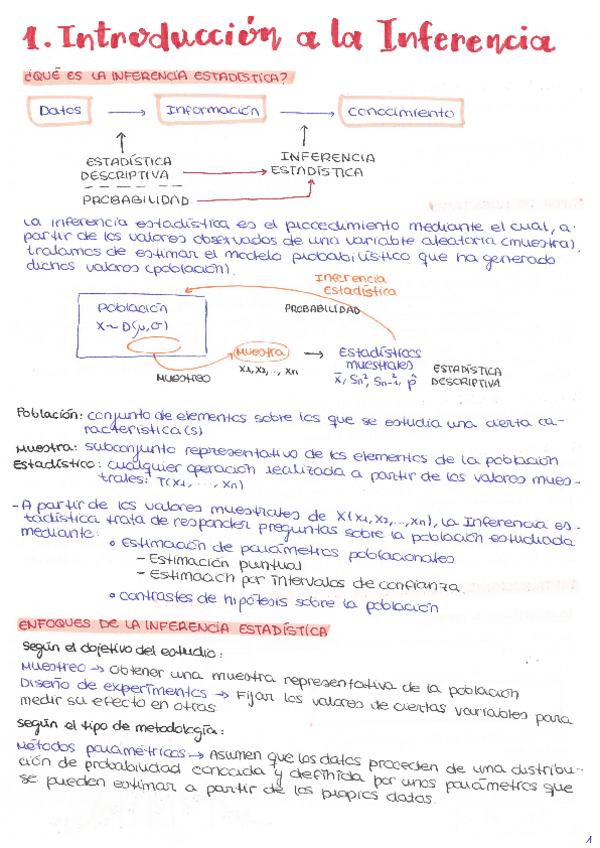 1. Introducción a la Inferencia
¿QUÉ ES LA INFERENCIA ESTADÍSTICA?
Datos → Información → Conocimiento
ESTADÍSTICA DESCRIPTIVA
INFERENCIA ESTADÍSTICA
PROBABILIDAD
La inferencia estadística es el procedimiento mediante el cual, a
partir de los valores observados de una variable aleatoria (muestra),
tratamos de estimar el modelo probabilístico que ha generado
dichos valores (población).
Inferencia
Estadística
PROBABILIDAD
Población
X~D(μ,σ)
Muestreo
Muestra
x1, x2, .., xn
→ Estadísticos
muestrales
x̄, Sn², Sn-1², p̂
ESTADÍSTICA
DESCRIPTIVA
Población: conjunto de elementos sobre los que se estudia una cierta ca-
racterística(s)
Muestra: subconjunto representativo de los elementos de la población
Estadístico: cualquier operación realizada a partir de los valores mues-
trales: T(x1, ..., xn)
- A partir de los valores muestrales de X(x1, x2, ..., xn), la Inferencia es-
tadística trata de responder preguntas sobre la población estudiada
mediante:
• Estimación de parámetros poblacionales
- Estimación puntual
- Estimación por intervalos de confianza
• Contrastes de hipótesis sobre la población
ENFOQUES DE LA INFERENCIA ESTADÍSTICA
Según el objetivo del estudio:
Muestreo → Obtener una muestra representativa de la población
Diseño de experimentos → Fijar los valores de ciertas variables para
medir su efecto en otras
Según el tipo de metodología:
Métodos paramétricos → Asumen que los datos proceden de una distribu-
ción de probabilidad conocida y definida por unos parámetros que
se pueden estimar a partir de los propios datos.
1